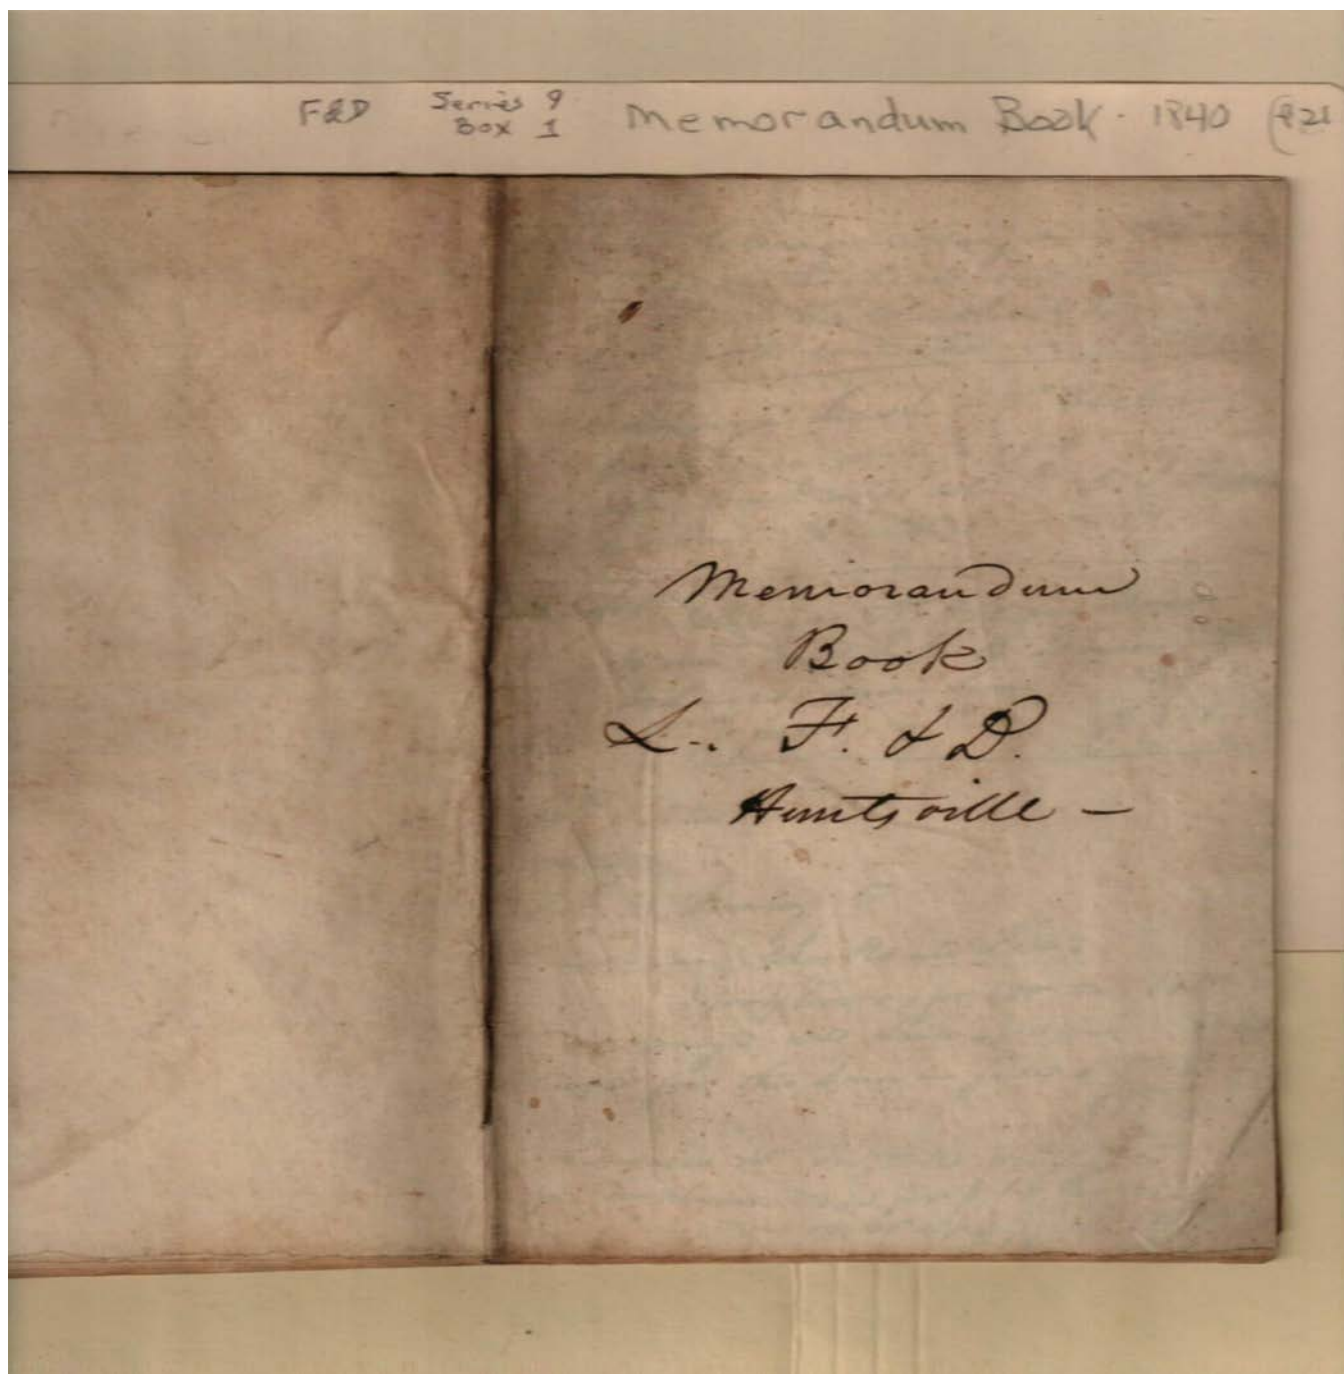 F&D Series 9 Memorandum Book. 1840 (821
Box 1
Memorandum
Book
L. F. & D.
Huntsville —